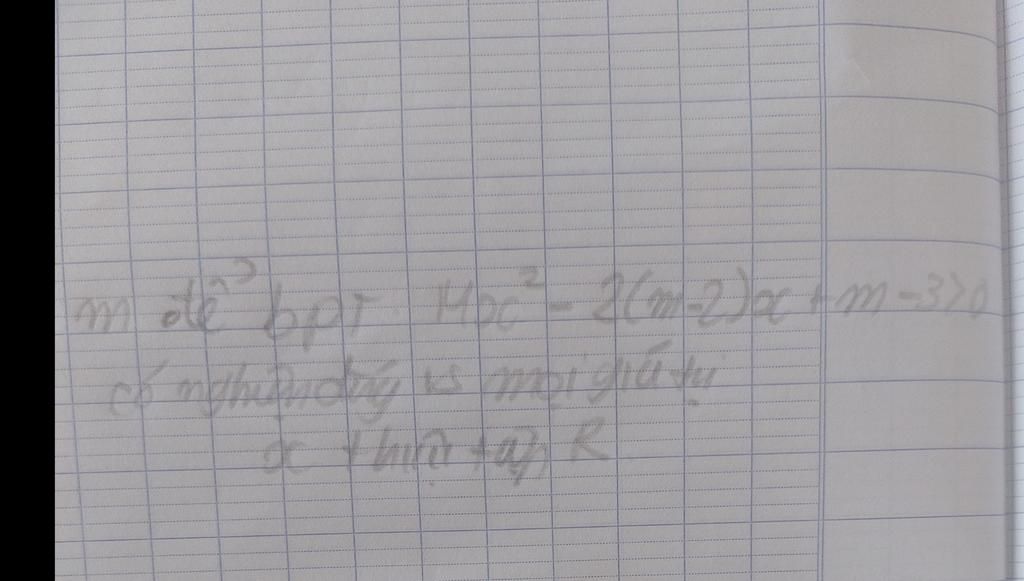 m để bpt 4x² - 2(m-2)x + m - 3 > 0
có nghiệm đúng vs mọi giá trị
x thuộc tập R